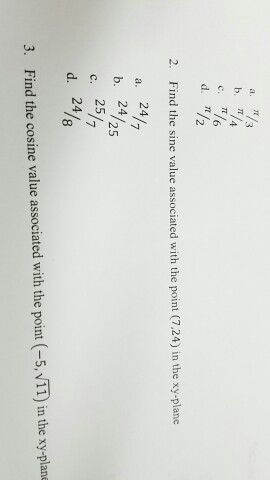 a. π/3
b. π/4
c. π/6
d. π/2
2. Find the sine value associated with the point (7,24) in the xy-plane
a. 24/7
b. 24/25
c. 25/7
d. 24/8
3. Find the cosine value associated with the point (−5,√11) in the xy-plane